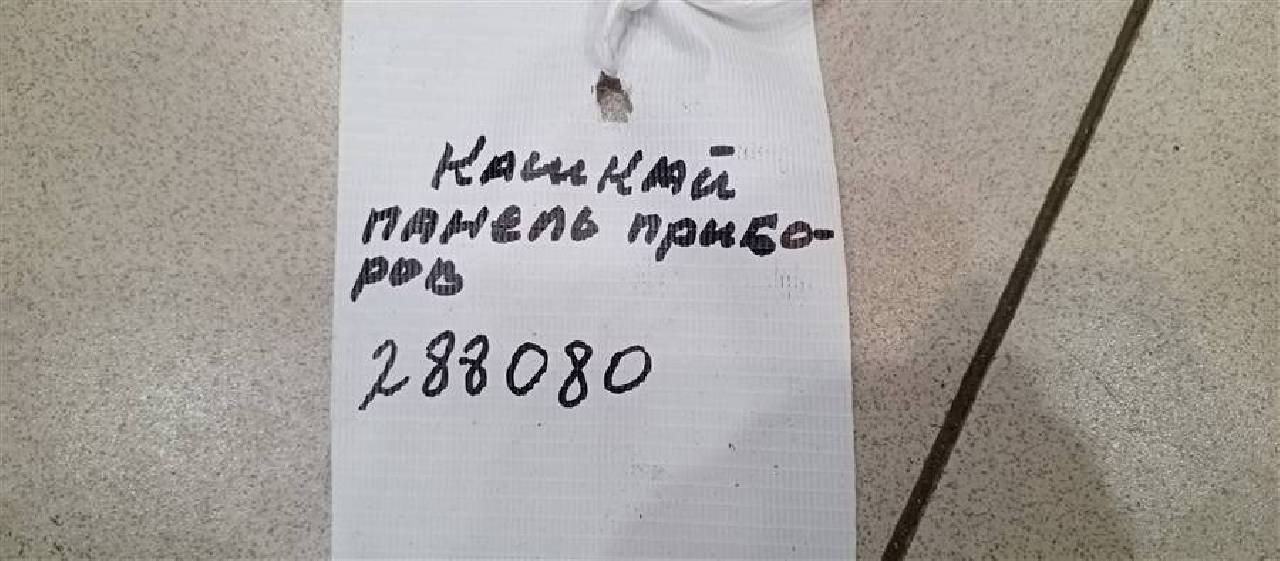 Кашкай
панель прибо-
ров
288080